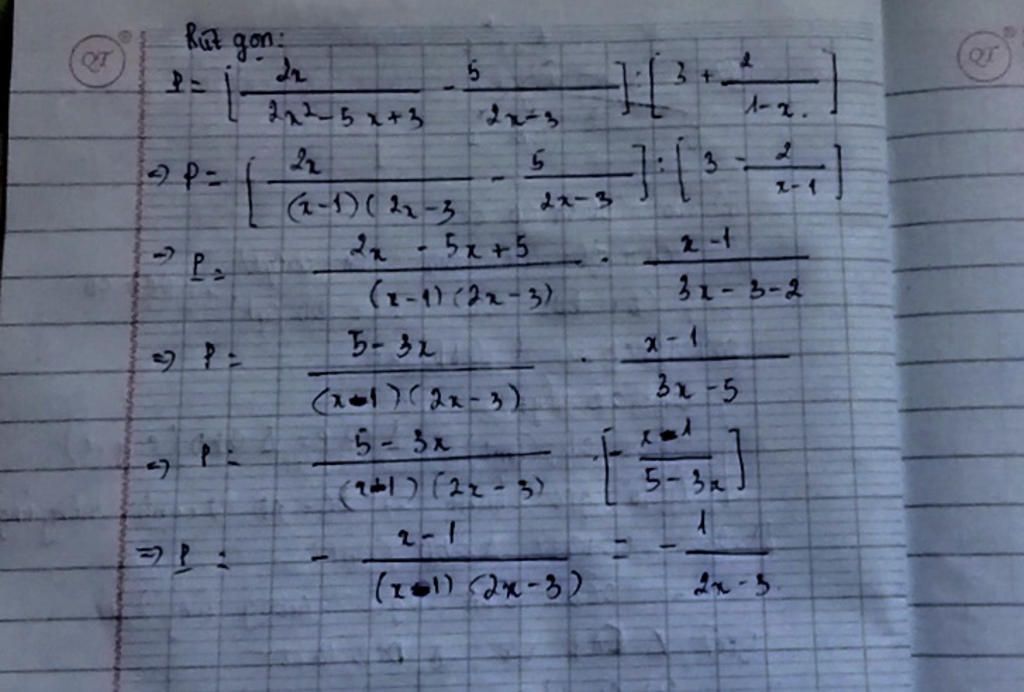 Rút gọn:
P = [ 2x / (2x² - 5x + 3) - 5 / (2x - 3) ] : [ 3 + 2 / (1 - x) ]
=> P = [ 2x / (x-1)(2x-3 - 5 / (2x-3) ] : [ 3 - 2 / (x-1) ]
=> P = (2x - 5x + 5) / (x-1)(2x-3) . (x-1) / (3x-3-2)
=> P = (5-3x) / (x-1)(2x-3) . (x-1) / (3x-5)
=> P = (5-3x) / (x-1)(2x-3) . [ - (x-1) / (5-3x) ]
=> P = - (x-1) / (x-1)(2x-3) = - 1 / (2x-3)